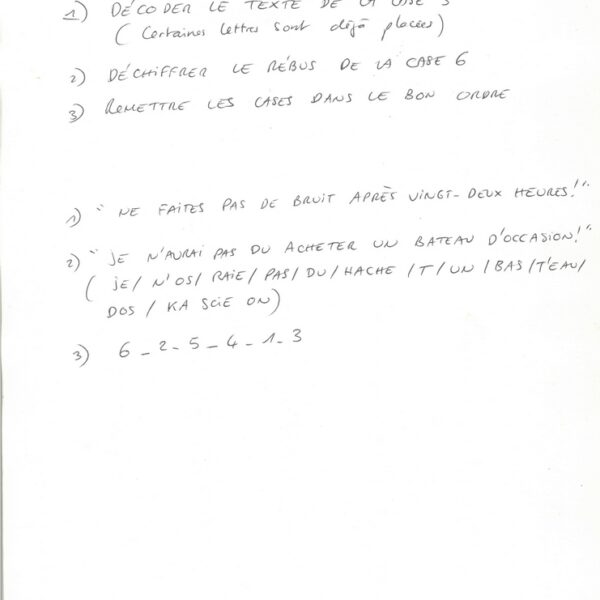 1) DÉCODER LE TEXTE DE LA CASE 3
(Certaines lettres sont déjà placées)
2) DÉCHIFFRER LE RÉBUS DE LA CASE 6
3) REMETTRE LES CASES DANS LE BON ORDRE
1) "NE FAITES PAS DE BRUIT APRÈS VINGT-DEUX HEURES!"
2) "JE N'AURAI PAS DU ACHETER UN BATEAU D'OCCASION!"
(JE/ N'OS/ RAIE/ PAS/ DU/ HACHE /T/ UN /BAS /T'EAU/
DOS / KA SCIE ON)
3) 6 _ 2 - 5 _ 4 _ 1 _ 3